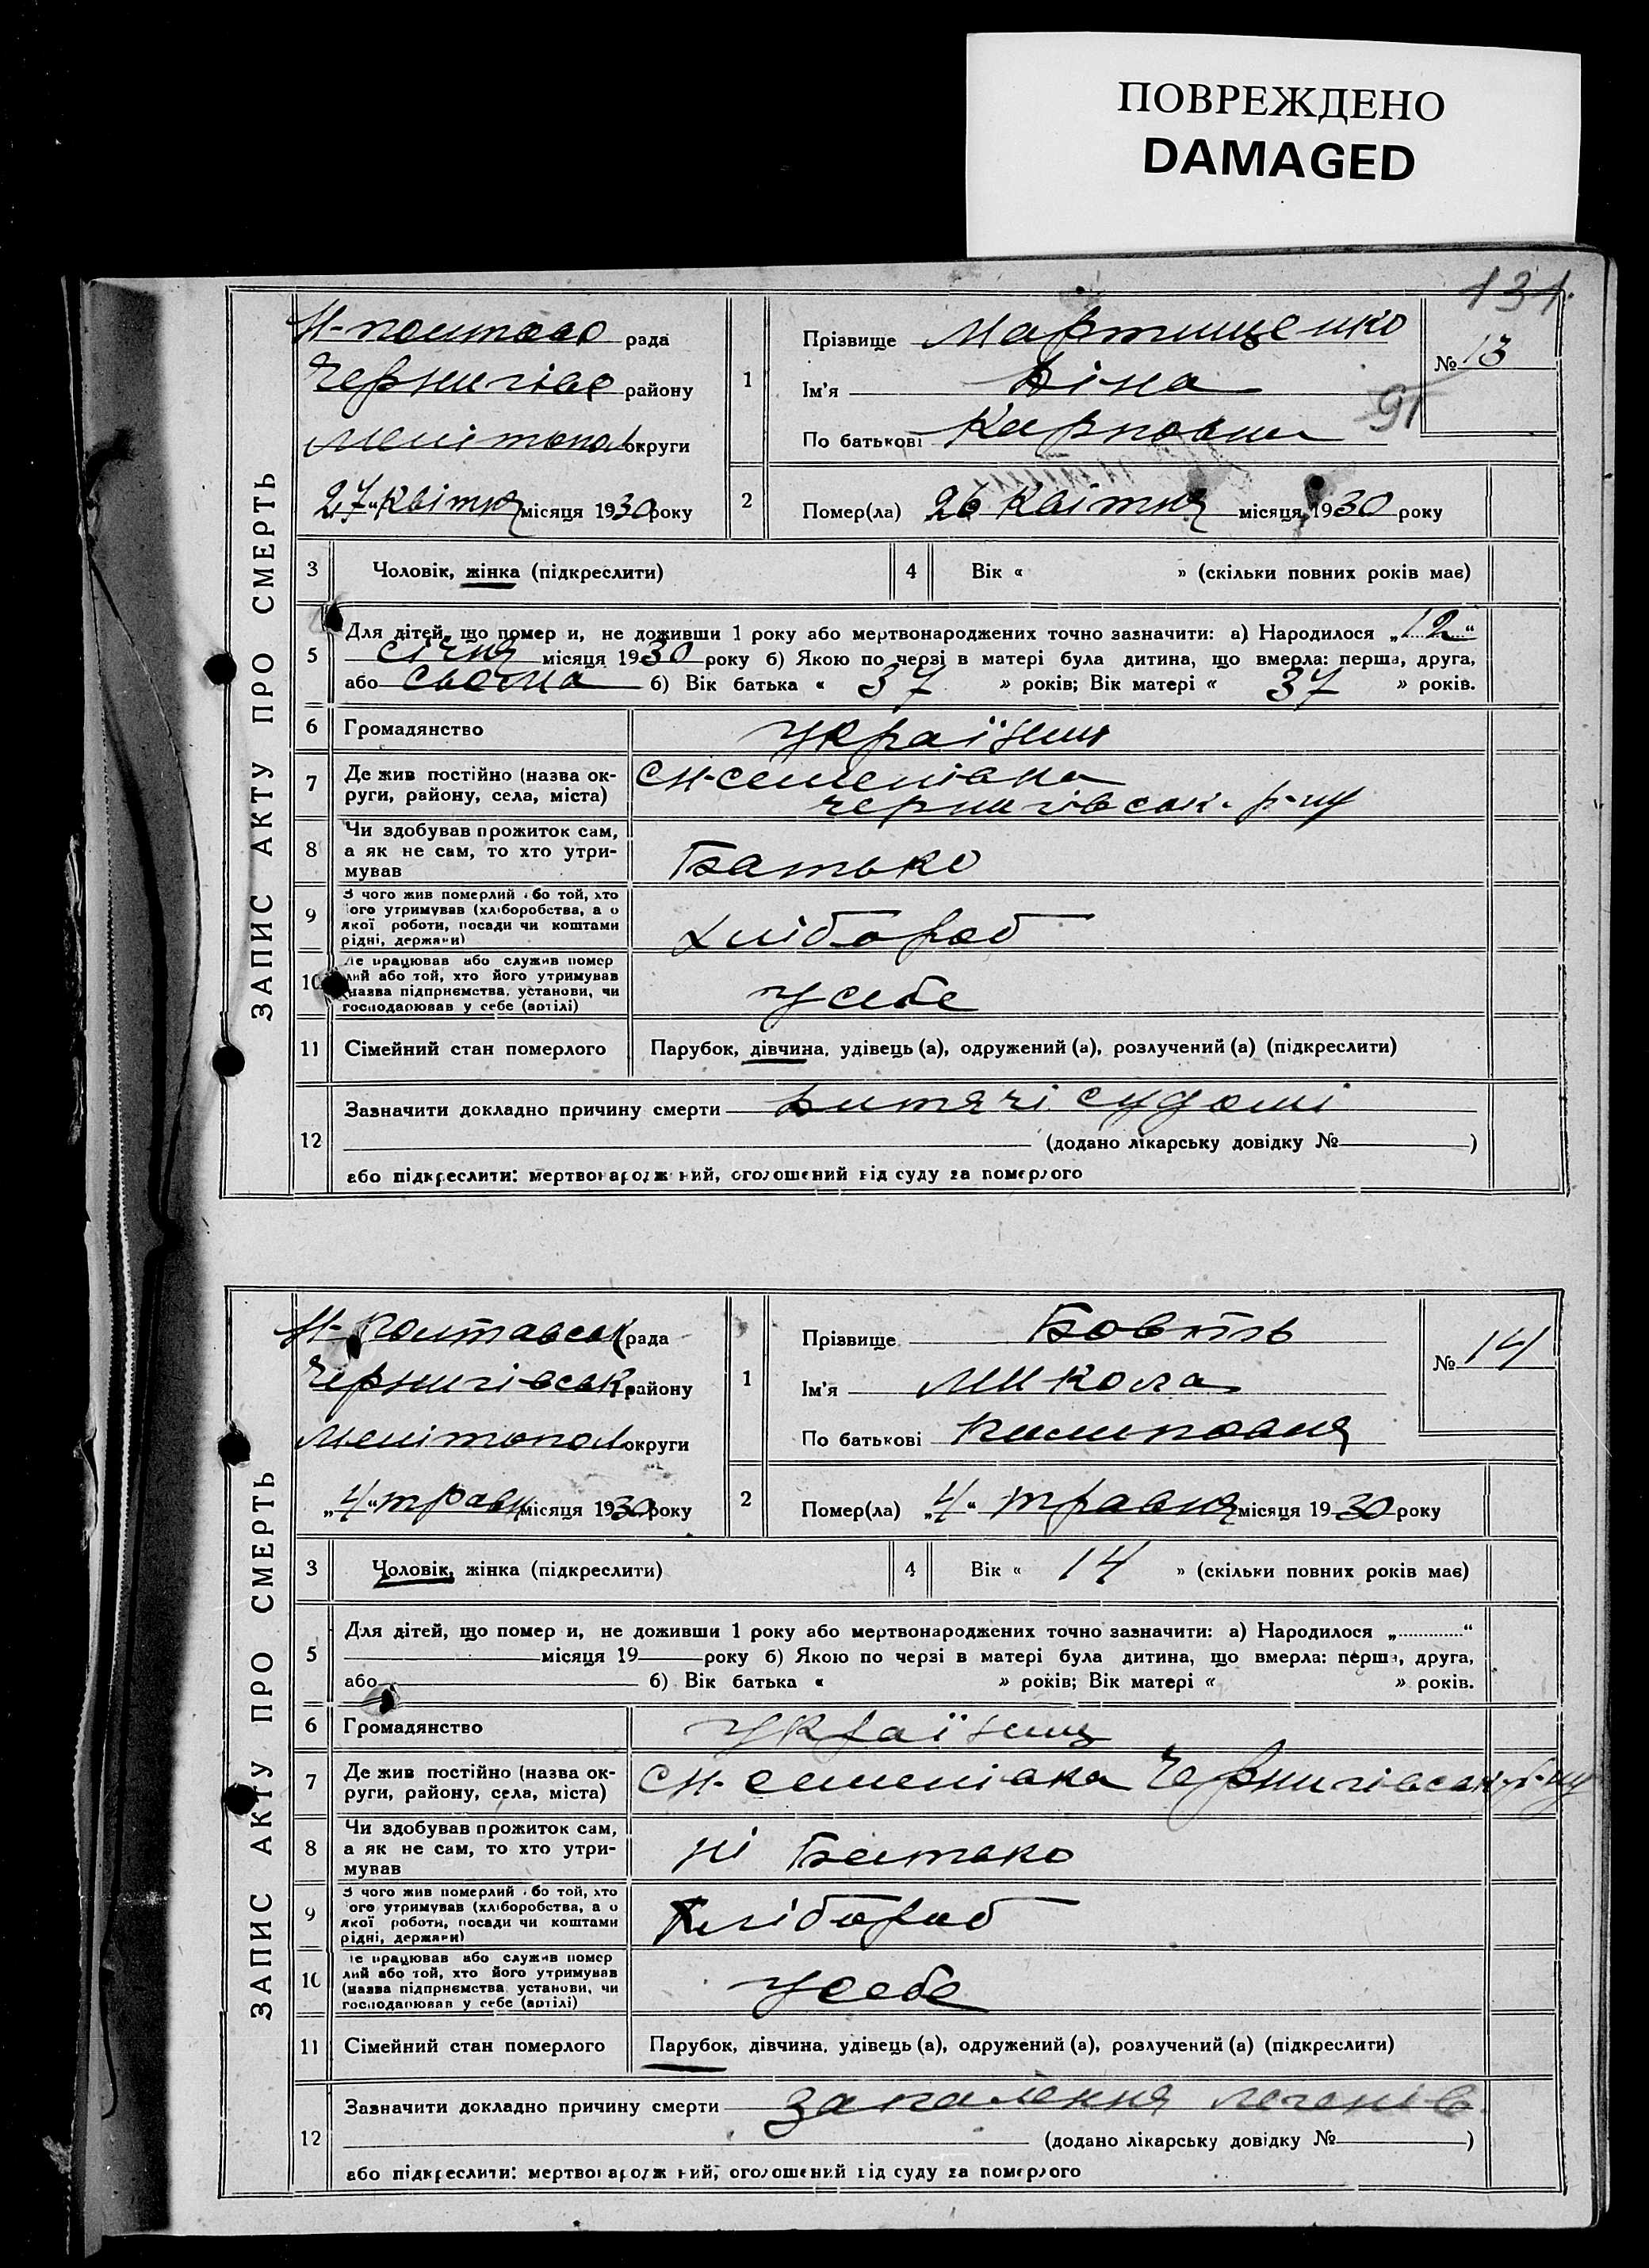 ПОВРЕЖДЕНО
DAMAGED
131.
ЗАПИС АКТУ ПРО СМЕРТЬ
Н-полтавс рада
Чернигівс району
Мелітопол округи
27 "Квітня місяця 1930 року
1
Прізвище Мартищенко
Ім'я Віна
По батькові Карповна
№ 13
91
2
Помер(ла) 26 Квітня місяця 1930 року
3 Чоловік, жінка (підкреслити)
4 Вік « » (скільки повних років має)
5 Для дітей, що помер и, не доживши 1 року або мертвонароджених точно зазначити: а) Народилося „12“
січня місяця 1930 року б) Якою по черзі в матері була дитина, що вмерла: перша, друга,
або сьома б) Вік батька « 37 » років; Вік матері « 37 » років.
6 Громадянство Українц
7 Де жив постійно (назва ок-
руги, району, села, міста)
С Н-семенівка
чернигівськ. р-ну
8 Чи здобував прожиток сам,
а як не сам, то хто утри-
мував
Батько
9 З чого жив померлий або той, хто
його утримував (хліборобства, а о
якої роботи, посади чи коштами
рідні, держави)
Хлібороб
10 Де працював або служив помер
лий або той, хто його утримував
(назва підприємства, установи, чи
господарював у себе (артілі)
У себе
11 Сімейний стан померлого Парубок, дівчина, удівець (а), одружений (а), розлучений (а) (підкреслити)
12 Зазначити докладно причину смерти Дитячі судомі
(додано лікарську довідку № )
або підкреслити: мертвонароджений, оголошений від суду за померлого
ЗАПИС АКТУ ПРО СМЕРТЬ
Н-Полтавськ рада
Чернигівськ району
Мелітопол округи
„4“ травн місяця 1930 року
1
Прізвище
Ім'я Микола
По батькові Пилиповня
№ 14
2
Помер(ла) „4“ травня місяця 1930 року
3 Чоловік, жінка (підкреслити)
4 Вік « 14 » (скільки повних років має)
5 Для дітей, що помер и, не доживши 1 року або мертвонароджених точно зазначити: а) Народилося „ “
місяця 19 року б) Якою по черзі в матері була дитина, що вмерла: перша, друга,
або б) Вік батька « » років; Вік матері « » років.
6 Громадянство Українц
7 Де жив постійно (назва ок-
руги, району, села, міста)
С Н-семенівка Чернигівськ р-ну
8 Чи здобував прожиток сам,
а як не сам, то хто утри-
мував
ні Батько
9 З чого жив померлий або той, хто
його утримував (хліборобства, а о
якої роботи, посади чи коштами
рідні, держави)
Хлібороб
10 Де працював або служив помер
лий або той, хто його утримував
(назва підприємства, установи, чи
господарював у себе (артілі)
У себе
11 Сімейний стан померлого Парубок, дівчина, удівець (а), одружений (а), розлучений (а) (підкреслити)
12 Зазначити докладно причину смерти запалення легенів
(додано лікарську довідку № )
або підкреслити: мертвонароджений, оголошений від суду за померлого